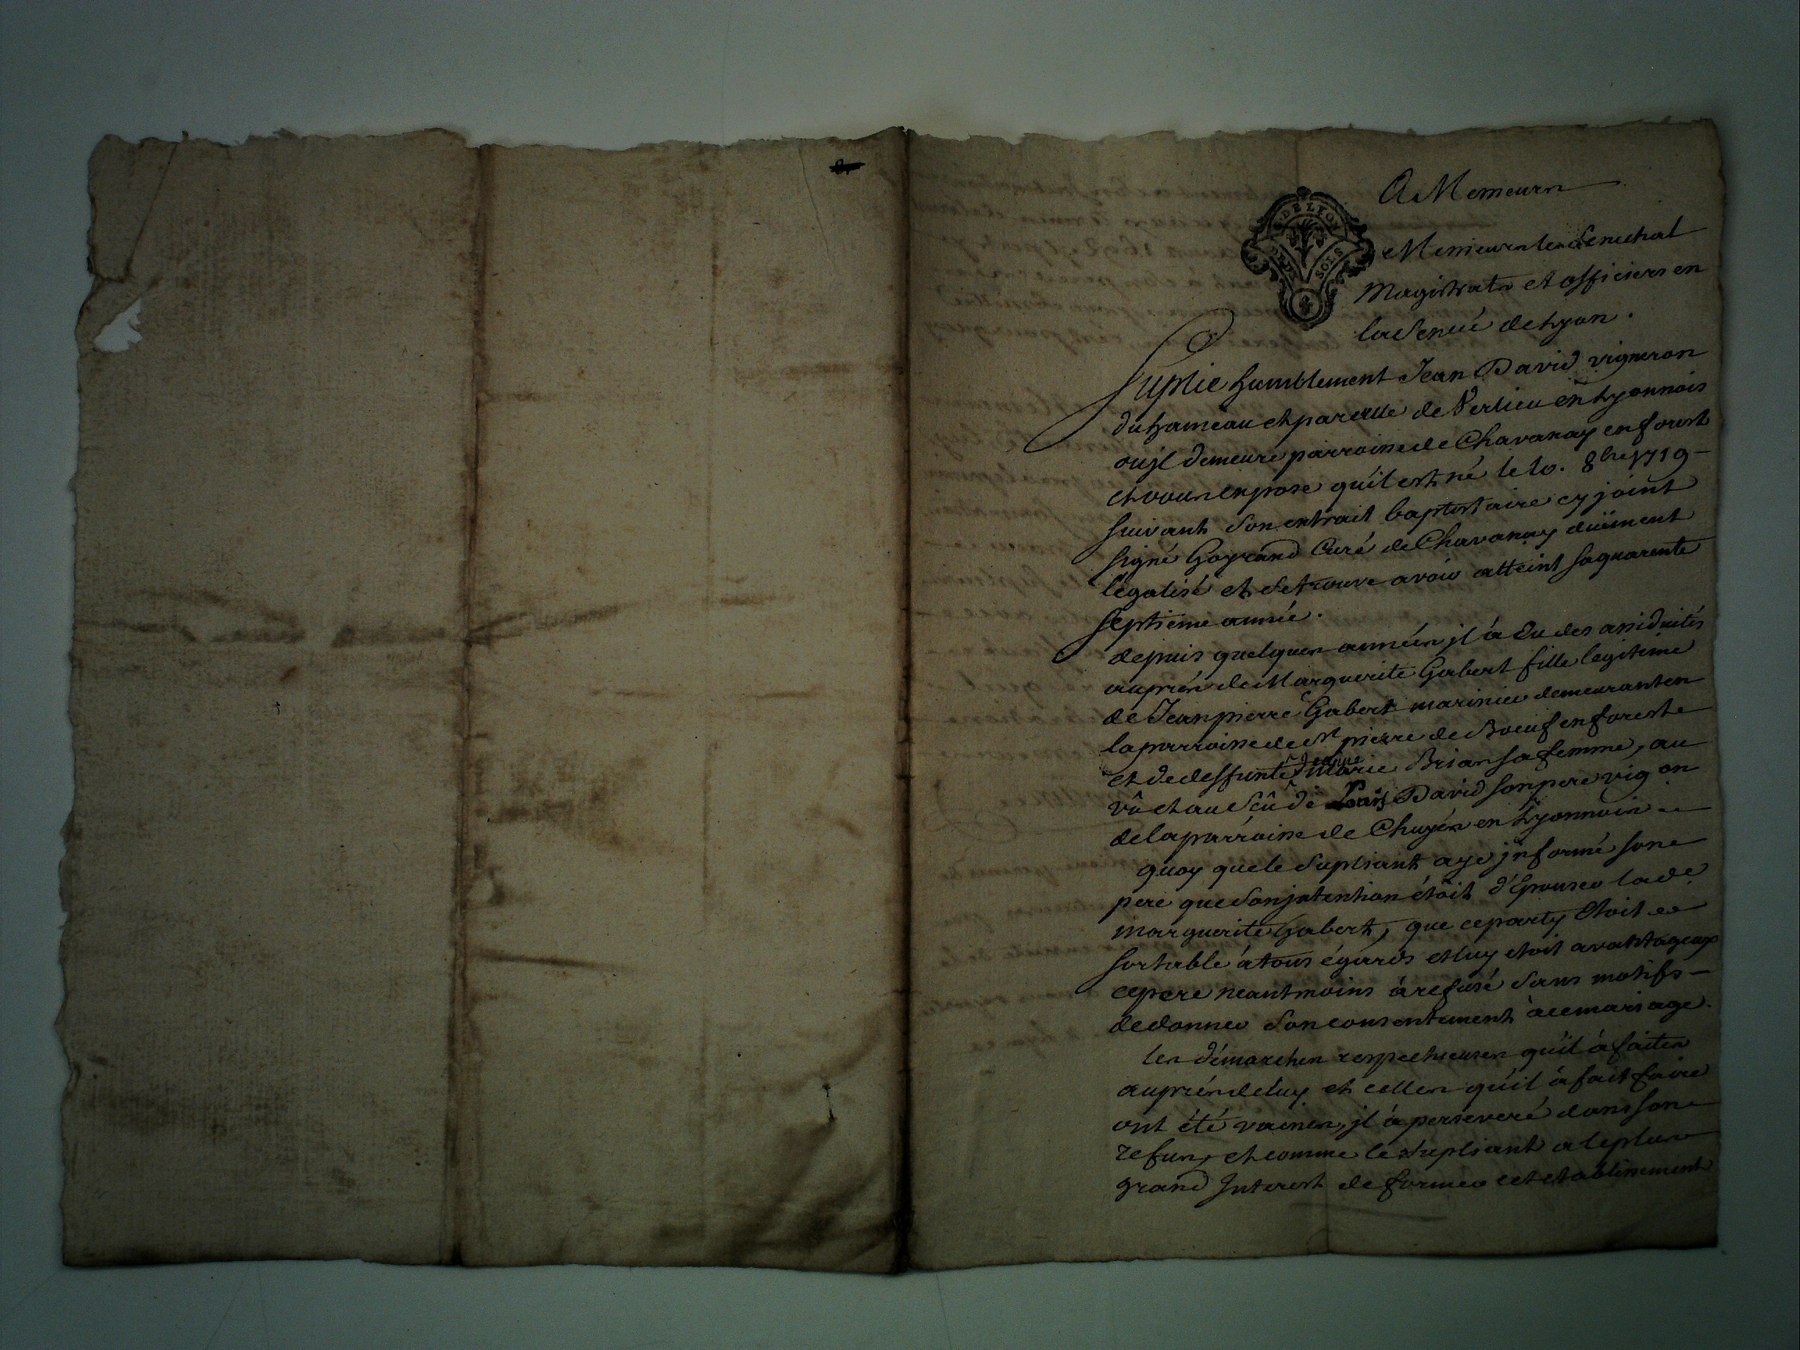 A Messieurs
Messieurs les Senechal
DE LYON
SOLS
Magistrats et officiers en
la Senéé de Lyon.
Suplie humblement Jean David vigneron
du hameau et parcelle de Verlieu en Lyonnois
ou jl demeure parroisse de Chavanay en forest
et vous expose qu'il est né le 10. 8bre 1719 -
suivant Son extrait baptistaire cy joint
signé Gayrand Curé de Chavanay duëment
légalisé et se trouve avoir atteint sa quarente
septieme année.
depuis quelques années jl à Eu des assiduités
auprés de Marguerite Gabert fille legitime
de Jean pierre Gabert marinier demeurant en
la parroisse de St pierre de Boeuf en forest
et de deffunte Marie Brian sa femme, au
vû et au sçû de Louis David son pere vigon
de la parroisse de Chuyés en Lyonnois
quoy que le Supliant aye jnformé son
pere que son jntention étoit d'Epouser lade
marguerite Gabert, que ce party étoit
sortable à tous égards et luy etoit avantageux
ce pere neantmoins à refusé Sans motifs -
de donner Son consentement à ce mariage.
les démarches respectueuses qu'il à faites
auprés de luy et celles qu'il à fait faire
ont été vaines, jl à perseveré dans son
refus, et comme le Supliant a le plus
grand Interest de former cet etablissement